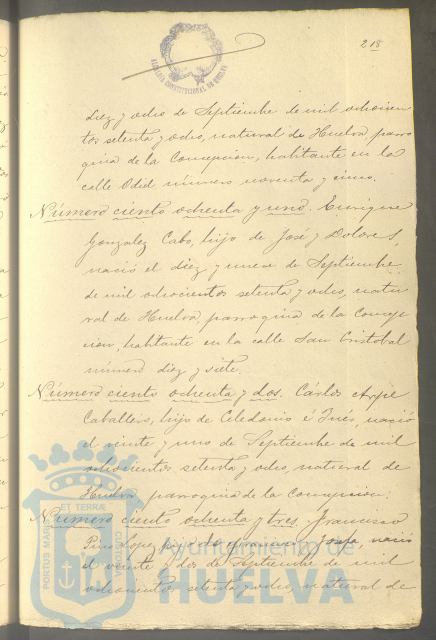 218
ALCALDIA CONSTITUCIONAL DE HUELVA
diez y ocho de Septiembre de mil ochocien
tos setenta y ocho, natural de Huelva parro
quia de la Concepcion, habitante en la
calle Odiel número noventa y cinco.
Número ciento ochenta y uno. Enrique
Gonzalez Cabo, hijo de José y Dolores,
nació el diez y nueve de Septiembre
de mil ochocientos setenta y ocho, natu
ral de Huelva, parroquia de la Concep
cion, habitante en la calle San Cristobal
número diez y siete.
Número ciento ochenta y dos. Cárlos Arpe
Caballero, hijo de Celedonio é Inés, nació
el veinte y uno de Septiembre de mil
ochocientos setenta y ocho, natural de
Huelva, parroquia de la Concepcion.
Número ciento ochenta y tres. Francisco
Pino Lopez, hijo de y Josefa nació
el veinte y dos de Septiembre de mil
ochocientos setenta y ocho, natural de
PORTUS MARIS ET TERRÆ CUSTODIA
Ayuntamiento de
HUELVA